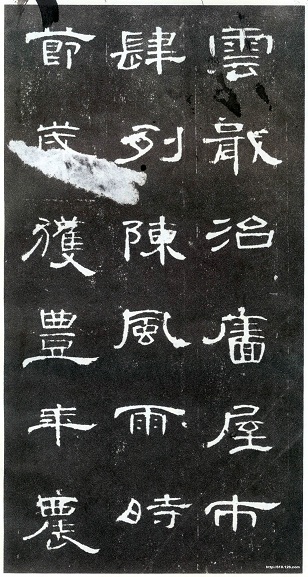 雲散治廧屋市
肆列陳風雨時
節歲獲豊年農